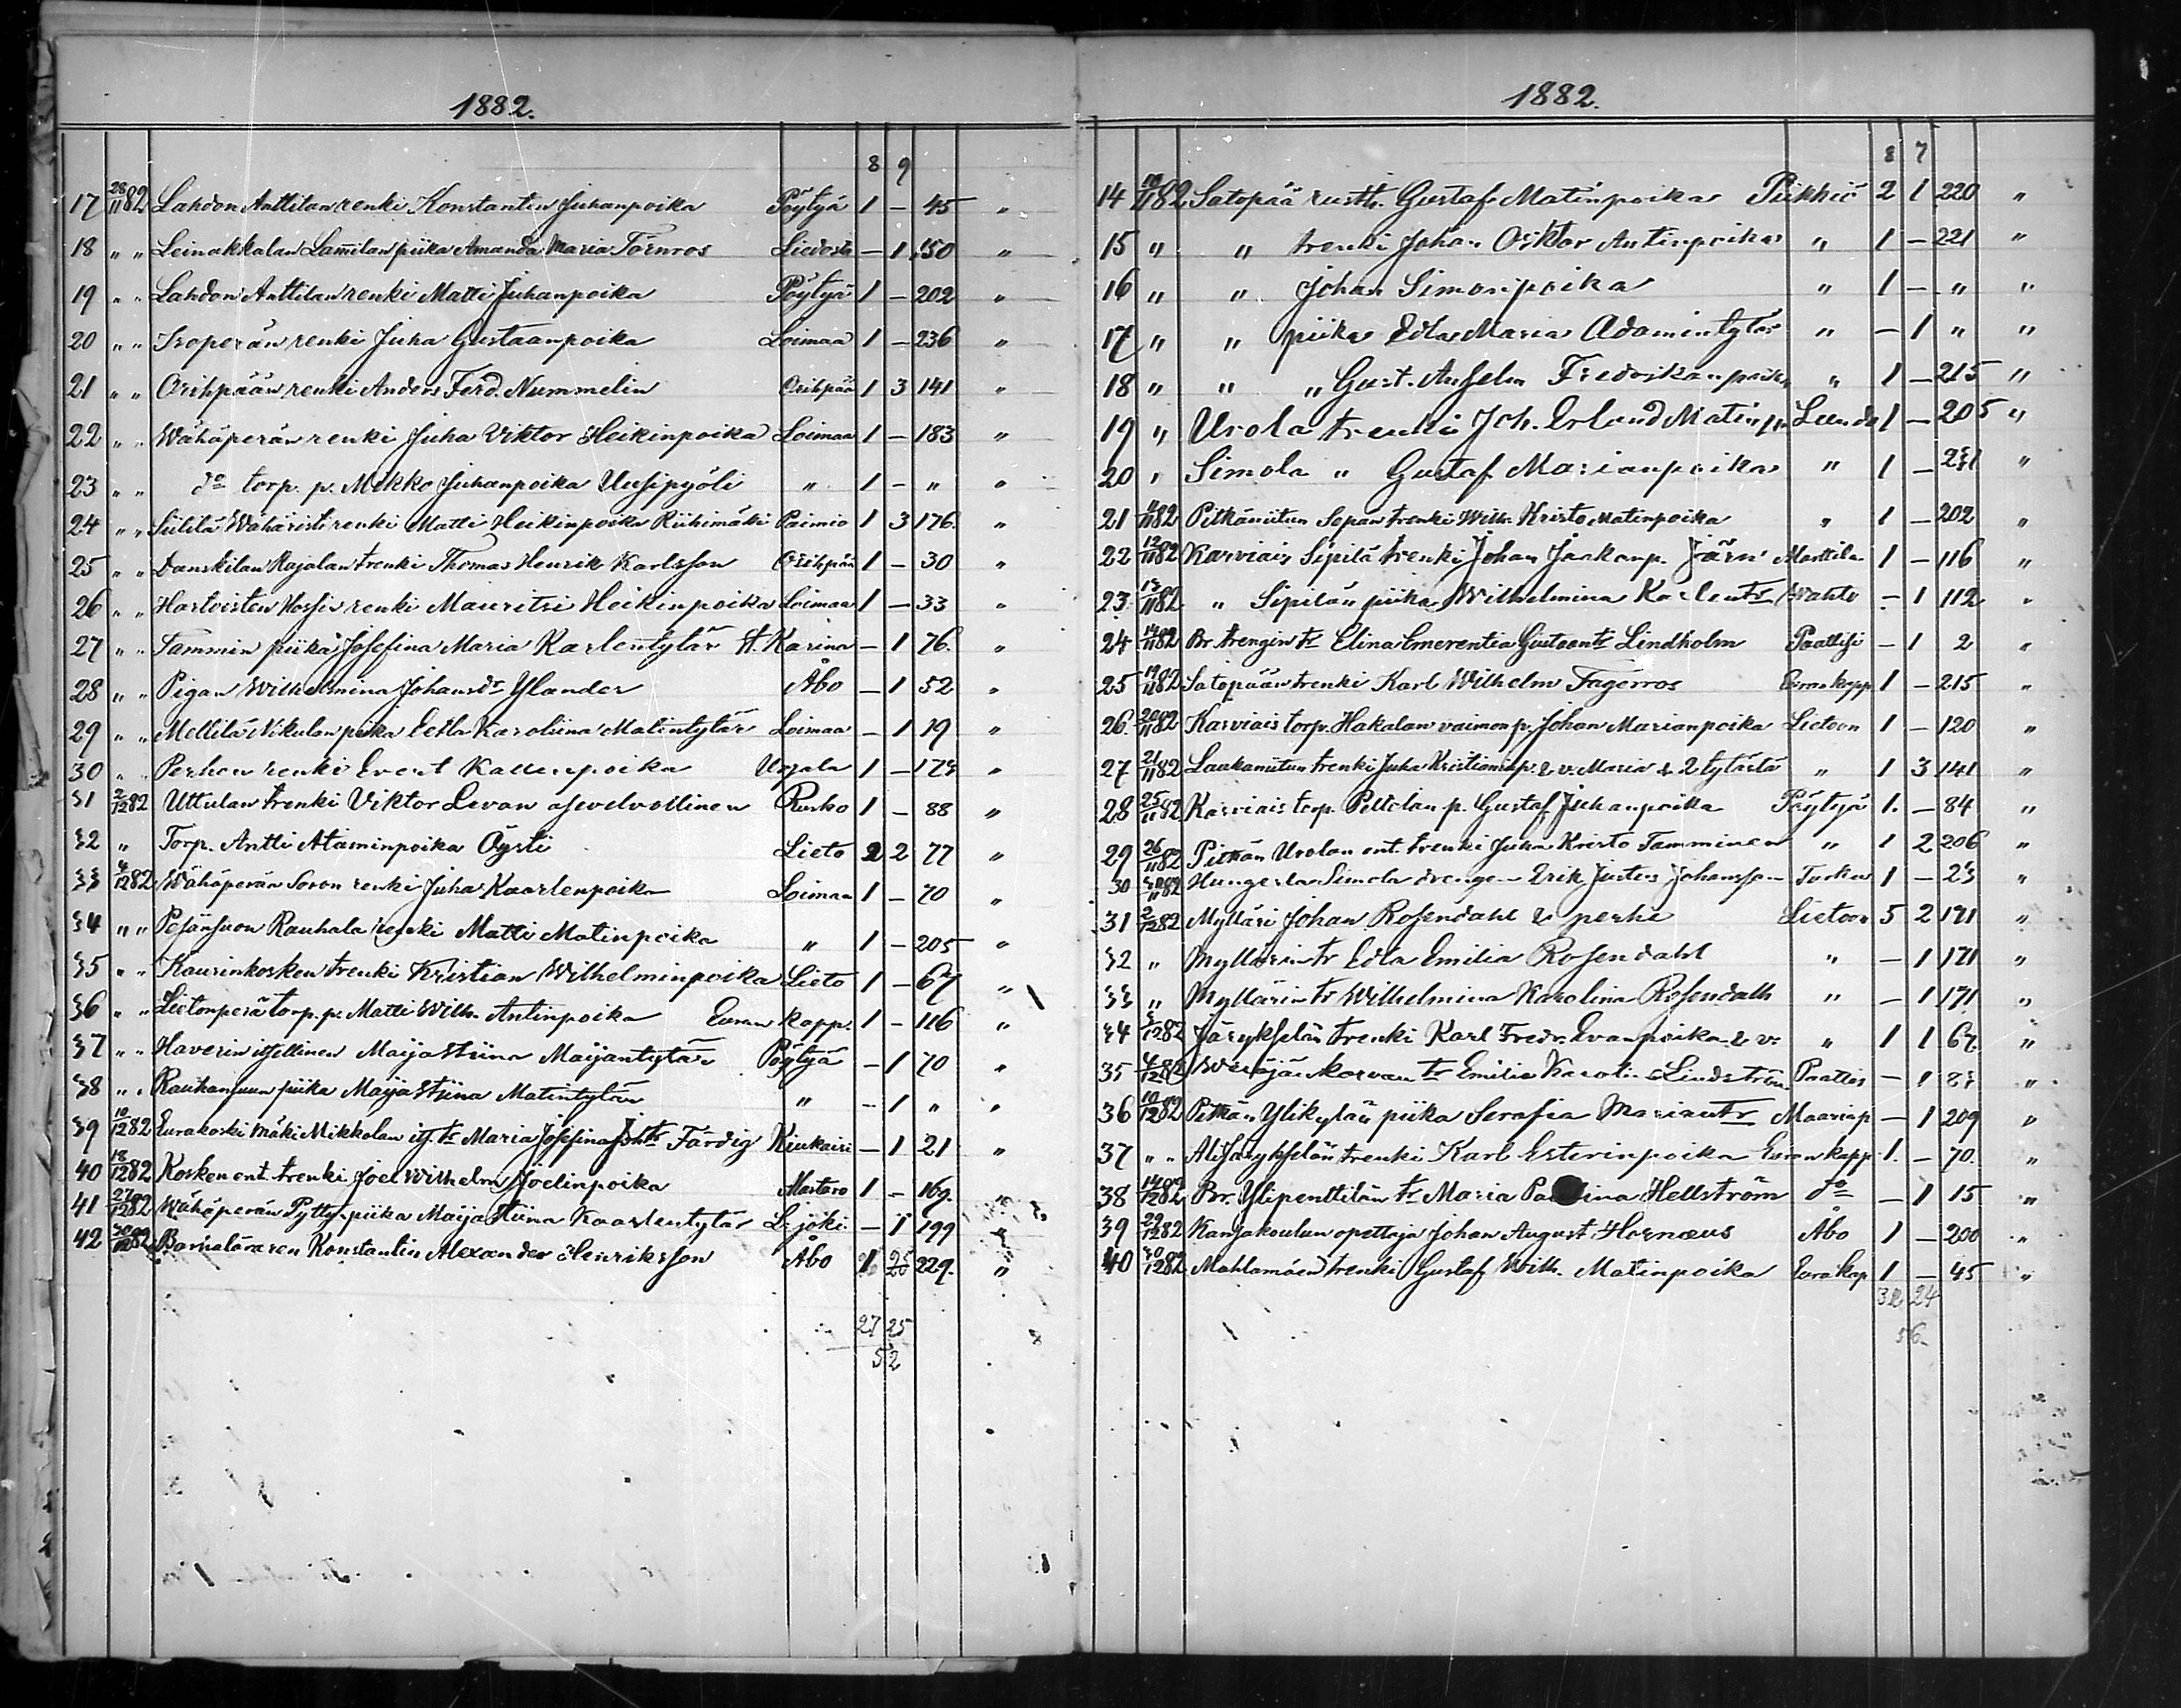 1882.
8 9
17 28/11 82 Lahdon Anttilan renki Konstantin Juhanpoika Pöytyä 1 – 45 "
18 " " Leinakkalan Lammilan piika Amanda Maria Törnros Liedosta – 1 150 "
19 " " Lahdon Anttilan renki Matti Juhanpoika Pöytyä 1 – 202 "
20 " " Isoperän renki Juha Gustaanpoika Loimaa 1 – 236 "
21 " " Orihpään renki Anders Ferd. Nummelin Orihpää 1 3 141 "
22 " " Wähäperän renki Juha Viktor Heikinpoika Loimaa 1 – 183 "
23 " " do torp. p. Mikko Juhanpoika Uusipyöli " 1 – " "
24 " " Wähäristi renki Matti Heikinpoika Riihimäki Paimio 1 3 176. "
25 " " Danskilan Rajalan trenki Thomas Henrik Karlsson Orihpää 1 – 30 "
26 " " renki Mauritsi Heikinpoika Loimaa 1 – 33 "
27 " " Tammin piika Josefina Maria Karlentytär St. Karina – 1 76. "
28 " " Pigan Wilhelmina Johansdr Ylander Åbo – 1 52 "
29 " " Mellilä Nikulan piika Edla Karoliina Matintytär Loimaa – 1 19 "
30 " " Perhon renki Evert Kallenpoika Urjala 1 – 173 "
31 2/12 82 Uttulan trenki Viktor Levan asevelvollinen Rusko 1 – 88 "
32 " Torp. Antti Ataminpoika Öysti Lieto 2 2 77 "
33 4/12 82 Wähäperän Soron renki Juha Kaarlenpoika Loimaa 1 – 70 "
34 " " Pesänsuon Rauhala renki Matti Matinpoika " 1 – 205 "
35 " " Kaurinkosken trenki Kristian Wilhelminpoika Lieto 1 – 67 "
36 " " Lietonperä torp. p. Matti Wilh. Antinpoika Euran kapp. 1 – 116 "
37 " " Haverin itsellinen Maija Stiina Maijantytär Pöytyä – 1 70 "
38 " " Raukansuun piika Maija Stiina Matintytär " – 1 " "
39 10/12 82 Eurakoski Mäki Mikkolan its. tr Maria Josefina Johtr Färdig Kiukaisi – 1 21 "
40 18/12 82 Kosken ent. trenki Joel Wilhelm Joelinpoika Metsäro 1 – 169. "
41 27/12 82 Wähäperän Pytty piika Maija Stiina Kaarlentytär L: joki – 1 199 "
42 30/12 82 Barnaläraren Konstantin Alexander Henriksson Åbo 1 229. "
27 25
52
1882.
8 7
14 10/11 82 Satopää rusth. Gustaf Matinpoika Piikkiö 2 1 220 "
15 " " trenki Johan Viktor Antinpoika " 1 – 221 "
16 " " Johan Simonpoika " 1 – " "
17 " " piika Edla Maria Adamintytär " – 1 " "
18 " " " Gust. Anselm Fredrikanpoika " 1 – 215 "
19 " Urola trenki Joh. Erland Matinp. 1 – 205 "
20 " Simola " Gustaf Marianpoika " 1 – 231 "
21 11/11 82 Pitkäniitun Sepan trenki Wilh. Kristo Matinpoika " 1 – 202 "
22 12/11 82 Karviais Sipilä trenki Johan Jaakonp. Järn Marttila 1 – 116 "
23 13/11 82 " Sipilän piika Wilhelmina Karlentr Wahto – 1 112 "
24 14/11 82 Br. trengin tr Elina Emerentia Gustaantr Lindholm Paattisi – 1 2 "
25 19/11 82 Satopään trenki Karl Wilhelm Fagerros Euran kapp 1 – 215 "
26. 20/11 82 Karviais torp. Hakalan vaimon p. Johan Marianpoika Lietoon 1 – 120 "
27 21/11 82 Laukaniitun trenki Juha Kristianinp. & v. Maria & 2 tytärtä " 1 3 141 "
28 25/11 82 Karviais torp. Peltolan p. Gustaf Juhanpoika Pöytyä 1. – 84 "
29 26/11 82 Pitkän Urolan ent. trenki Juha Kristo Tamminen " 1 2 206 "
30 30/11 82 Hungerla Simola drengen Erik Justus Johansson Turkuu 1 – 23 "
31 2/12 82 Mylläri Johan Rosendahl & perhe Lietoon 5 2 171 "
32 " Myllärin tr Edla Emilia Rosendahl " – 1 171 "
33 " Myllärin tr Wilhelmina Karolina Rosendahl " – 1 171 "
34 3/12 82 Järykselän trenki Karl Fredr. Evanpoika & v. " 1 1 67. "
35 4/12 82 Korvan tr Emilia Karolina Lindström Paattis – 1 83 "
36 10/12 82 Pitkän Ylikylän piika Serafia Mariantr Maariap – 1 209 "
37 " " Ali Järykselän trenki Karl Esterinpoika Euran kapp 1. – 70. "
38 14/12 82 Br. Ylipenttilän tr Maria Pa ina Hellström do – 1 15 "
39 29/12 82 Kansakoulun opettaja Johan August Hornæus Åbo 1 – 200 "
40 30/12 82 Mahlamäen trenki Gustaf Wilh. Matinpoika Eura kap 1 – 45 "
32 24
56.